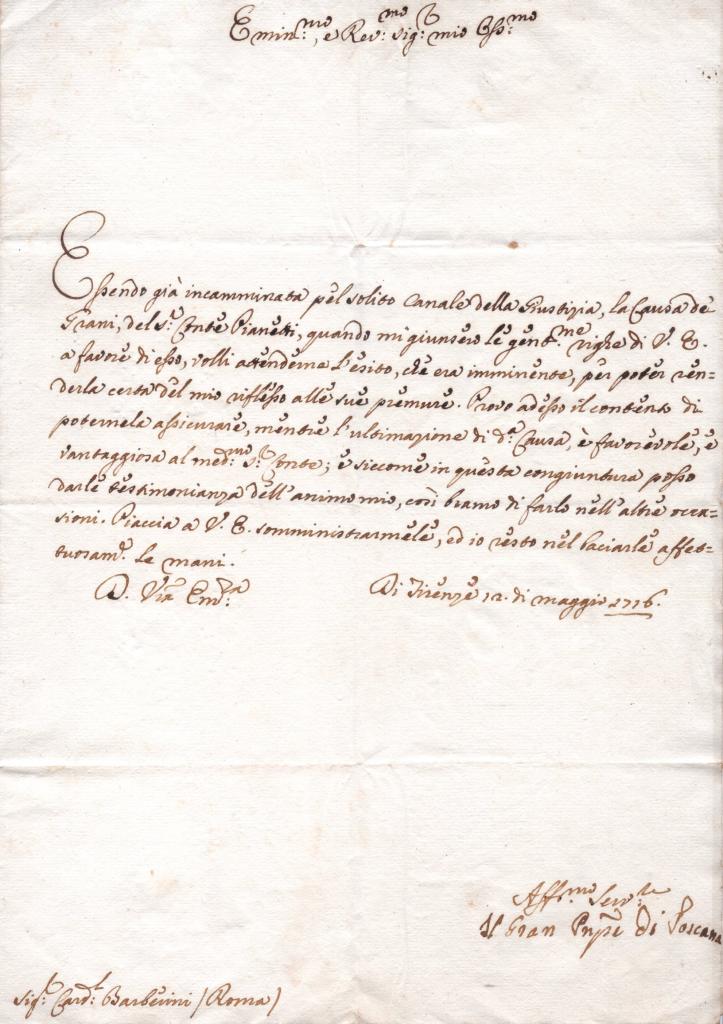 Emin.mo, e Rev.mo Sig.r mio Oss.mo
Essendo già incamminata pel solito Canale della Giustizia, la Causa de
Grani, del S.r Conte Pianetti, quando mi giunsero le gent.me righe di V. E.
a favore di esso, volli attenderne l'esito, che era imminente, per poter ren=
derla certa del mio riflesso alle sue premure. Provo adesso il contento di
poternela assicurare, mentre l'ultimazione di d.a Causa, è favorevole, e
vantaggiosa al med.mo S.r Conte; e siccome in questa congiuntura posso
darle testimonianza dell'animo mio, così bramo di farlo nell'altre occa=
sioni. Piaccia a V. E. somministrarmele, ed io resto nel baciarle affet=
tuosam.e le mani.
D. V.ra Em.za Di Firenze 12. di maggio 1716.
Aff.mo Serv.re
Il Gran Prnpe di Toscana
Sig.r Card.l Barberini (Roma)